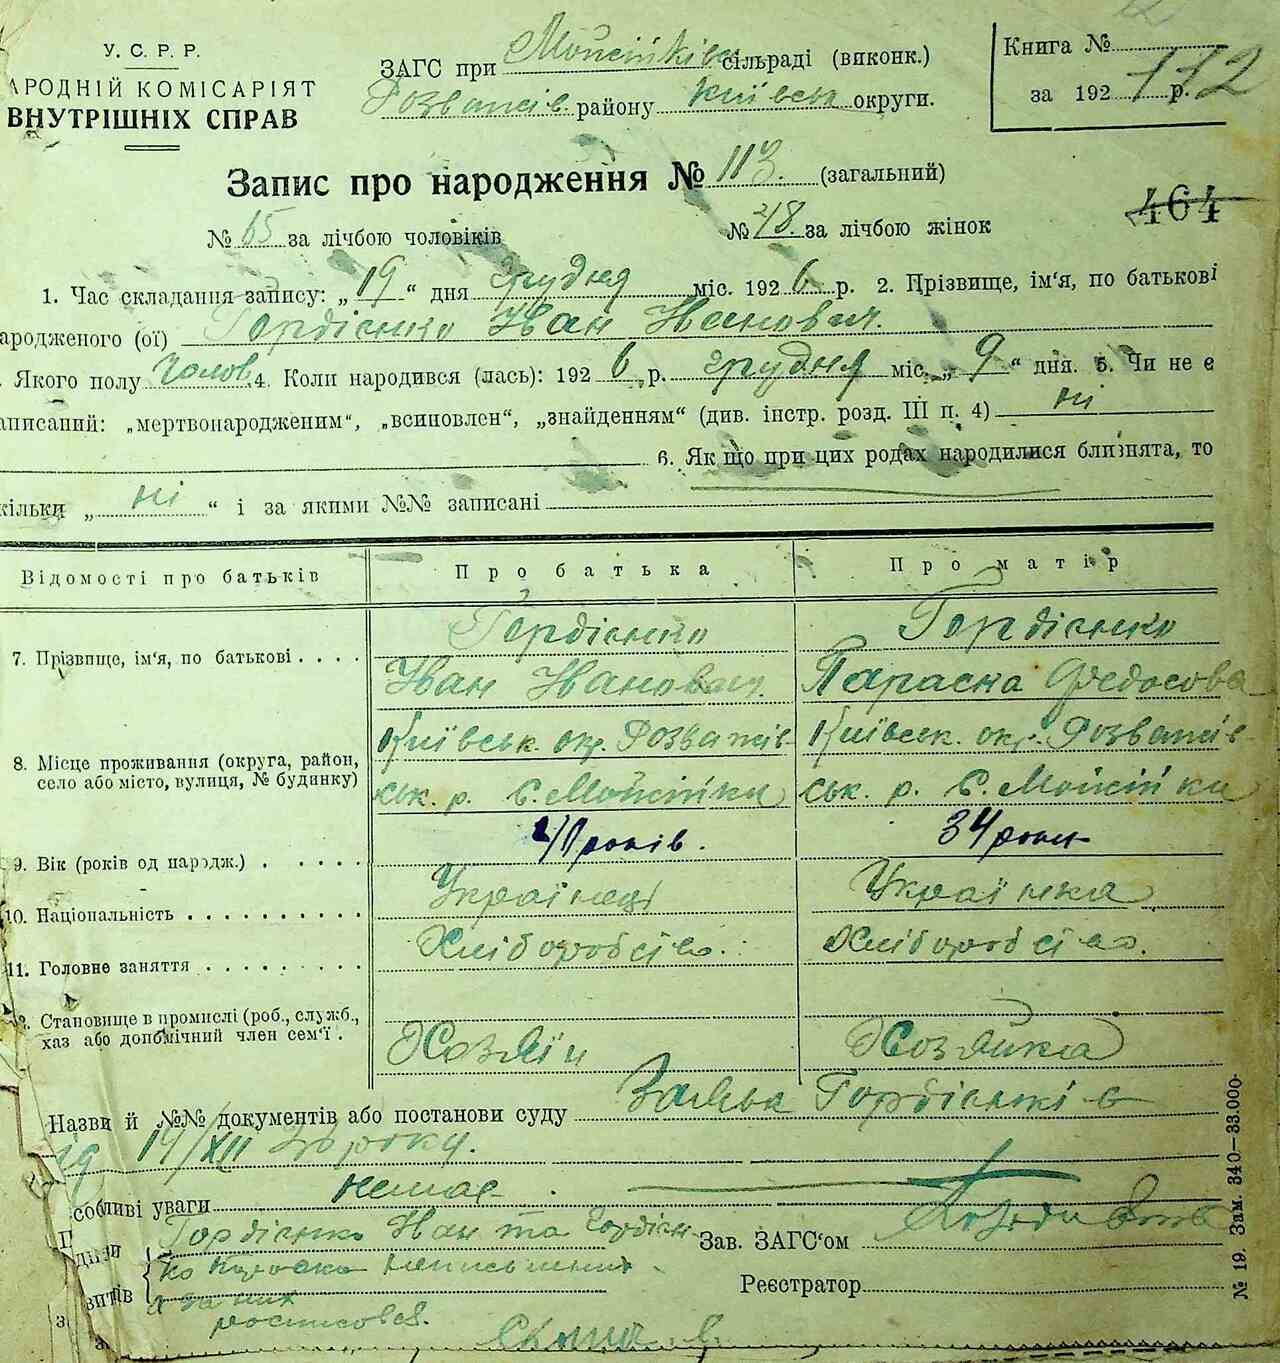 У. С. Р. Р.
АРОДНІЙ КОМІСАРІЯТ
ВНУТРІШНІХ СПРАВ
ЗАГС при Мойсійків сільраді (виконк.)
Розважів. району Київськ округи.
Книга №
за 192 р.
112
Запис про народження № 113. (загальний)
464
№ 65 за лічбою чоловіків № 48. за лічбою жінок
1. Час складання запису: „19“ дня грудня міс. 1926 р. 2. Прізвище, ім‘я, по батькові
ародженого (ої) Гордієнко Іван Іванович.
. Якого полу Чолов. 4. Коли народився (лась): 1926 р. грудня міс. „9“ дня. 5. Чи не є
аписаний: „мертвонародженим“, „всиновлен“, „знайденням“ (див. інстр. розд. III п. 4) ні
6. Якщо при цих родах народилися близнята, то
кільки „ні“ і за якими №№ записані
Відомості про батьків Про батька Про матір
7. Прізвище, ім‘я, по батькові . . . . Гордієнко Гордієнко
Іван Іванович. Параска Федосова
8. Місце проживання (округа, район, село або місто, вулиця, № будинку) Київськ. окр. Розважів- Київськ. окр. Розважів-
ськ. р. С. Мойсійки ськ. р. С. Мойсійки
9. Вік (років од народж.) . . . . . 41 років. 34 роки
10. Національність . . . . . . . . . . Українець Українка
11. Головне заняття . . . . . . . . . Хліборобство. Хліборобство.
12. Становище в промислі (роб., служб., хаз або допомічний член сем‘ї . Хозяїн Хозяйка
Назви й №№ документів або постанови суду Заява Гордієнків
від 19/XII 26 року.
собливі уваги немає.
Гордієнко Іван та Гордієн-
ко Параска неписьменні
а за них
росписовся.
Зав. ЗАГС‘ом
Реєстратор
№ 19. Зам. 340—33.000.